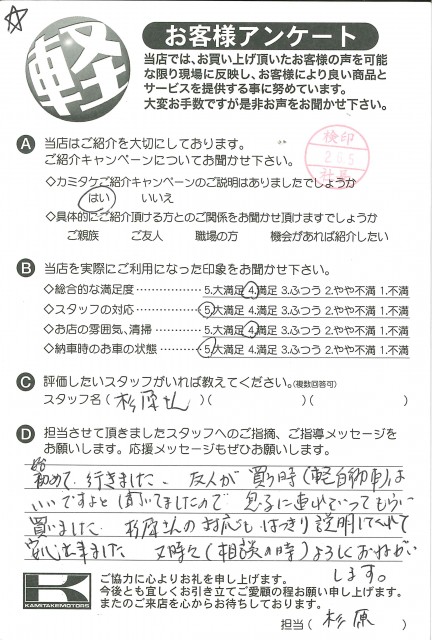 軽
お客様アンケート
当店では、お買い上げ頂いたお客様の声を可能
な限り現場に反映し、お客様により良い商品と
サービスを提供する事に努めています。
大変お手数ですが是非お声をお聞かせ下さい。
A 当店はご紹介を大切にしております。
ご紹介キャンペーンについてお聞かせ下さい。
検印
社長
◇カミタケご紹介キャンペーンのご説明はありましたでしょうか
はい いいえ
◇具体的にご紹介頂ける方とのご関係をお聞かせ頂けますでしょうか
ご親族 ご友人 職場の方 機会があれば紹介したい
B 当店を実際にご利用になった印象をお聞かせ下さい。
◇総合的な満足度 5.大満足 4.満足 3.ふつう 2.やや不満 1.不満
◇スタッフの対応 5.大満足 4.満足 3.ふつう 2.やや不満 1.不満
◇お店の雰囲気、清掃 5.大満足 4.満足 3.ふつう 2.やや不満 1.不満
◇納車時のお車の状態 5.大満足 4.満足 3.ふつう 2.やや不満 1.不満
C 評価したいスタッフがいれば教えてください。(複数回答可)
スタッフ名 (杉原さん)( )( )
D 担当させて頂きましたスタッフへのご指摘、ご指導メッセージを
お願いします。応援メッセージもぜひお願いします。
初めて行きました、友人が買う時(軽自動車)は
いいですよと聞いてましたので
買いました 杉原さんの対応もはっきり説明してくれて
安心出来ました 又時々(相談の時)よろしくおねがい
します。
K
KAMITAKEMOTORS
ご協力に心よりお礼を申し上げます。
今後とも宜しくお引き立てご愛顧の程お願い申し上げます。
またのご来店を心からお待ちしております。
担当(杉原)